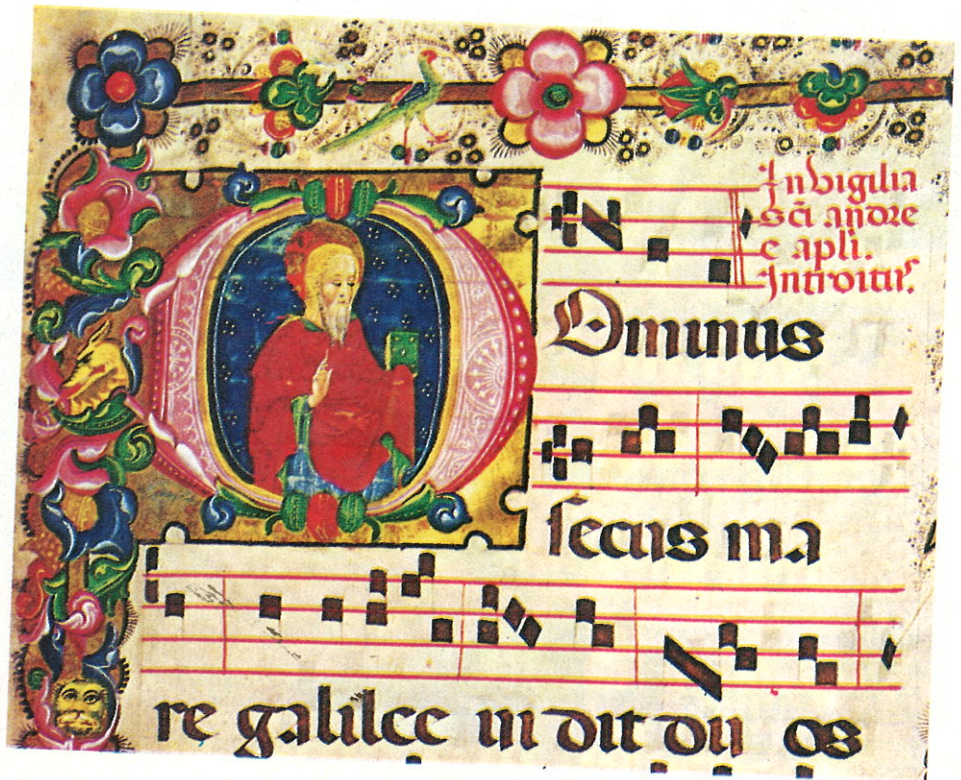 In vigilia
sci andre
e apli.
Introitus.
DOminus
secus ma
re galilee uidit du os